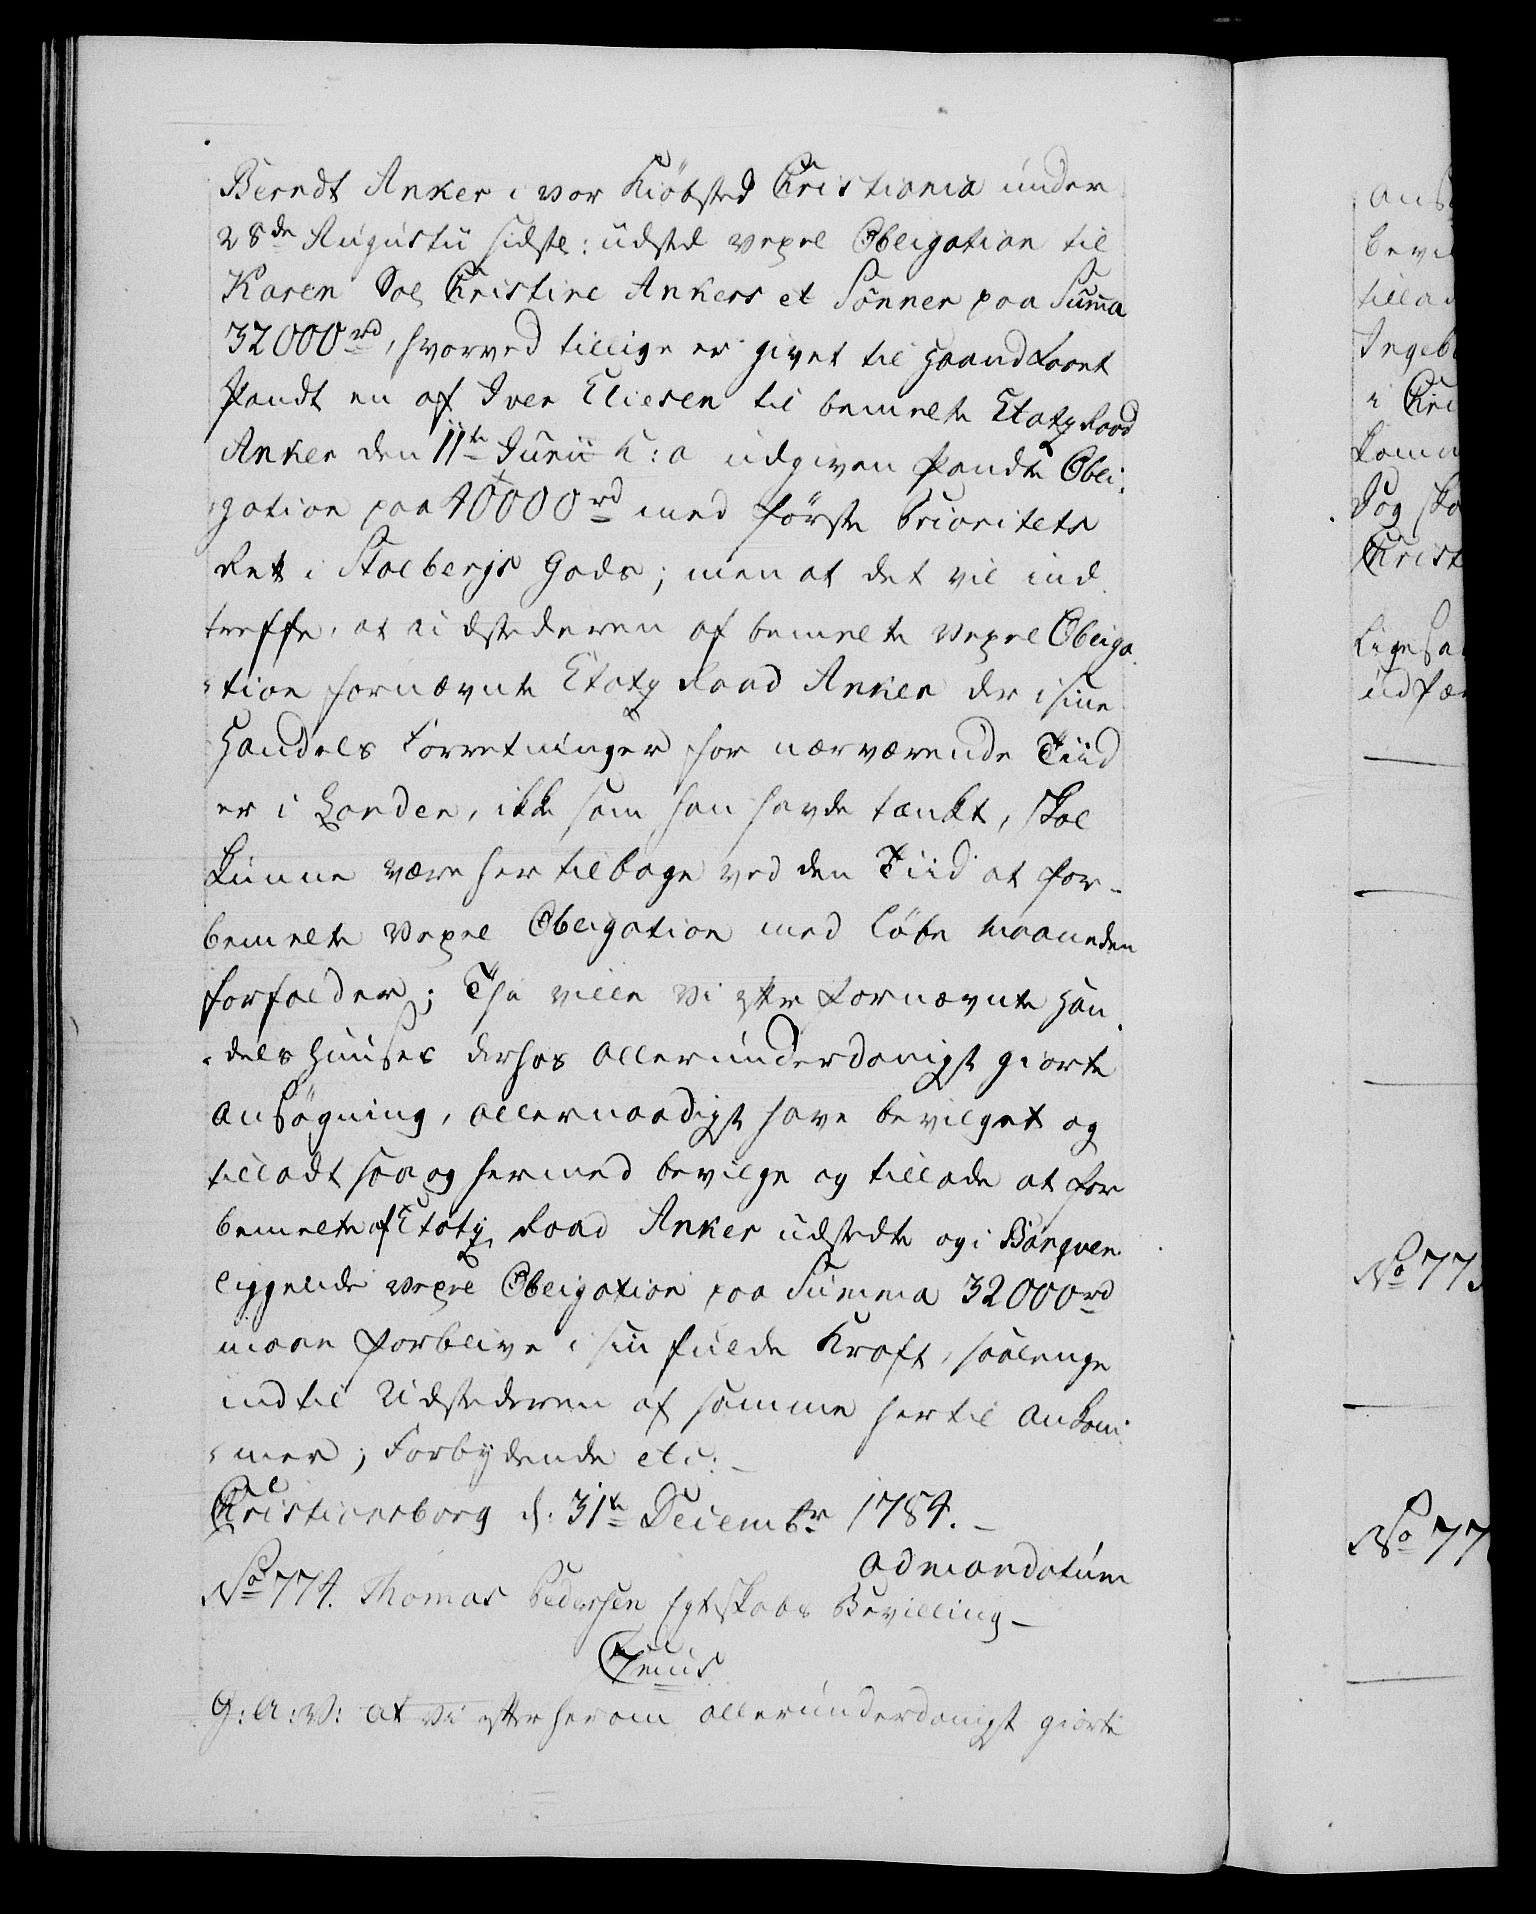 Berndt Anker i vor Kiöbsted Christiania under
28de Augustii sidstl: udsted Vexel Obligation til
Karen Sal Christine Ankers et Sønner paa Summa
32000rd, hvorved tillige er givet til Haandfaaet
Pandt en af Iver Eliesen til bemelte Etatz Raad
Anker den 11te Junii h: a udgiven Pandte Obli-
gation paa 40000rd med første Prioritets
Ret i Stoebergs Gods; men at det vil ind
treffe, at Udstederen af bemelte Vexel Obliga-
tion fornævnte Etatz Raad Anker der i sine
Handels Forretninger for nærværende Tiid
er i London, ikke som han havde tænkt, skal
kunne være her tilbage ved den Tiid at for-
bemelte Vexel Obligation med løbe Maaneden
forfalder; Thi ville Vi efter fornævnte Han-
dels Huuses derhos allerunderdanigst giorte
Ansøgning, allernaadigst have bevilget og
tilladt saa og hermed bevilge og tillade at for
bemelte af Etatz Raad Anker udstedte og i Banqven
liggende Vexel Obligation paa Summa 32000rd
maae forblive i sin fulde Kraft, saalænge
indtil Udstederen af samme hertil ankom-
mer; Forbydende etc:
Christiansborg d: 31te Decembr 1784.
ad mandatum
No 774. Thomas Pedersen Egteskabs Bevilling
7enus
G: A: V: at Vi efter herom allerunderdanigst giorte
Ans
bevil
tillad
Ingeb
i Chri
komm
Dog ska
Christ
Ligesa
udfær
No 775
No 77